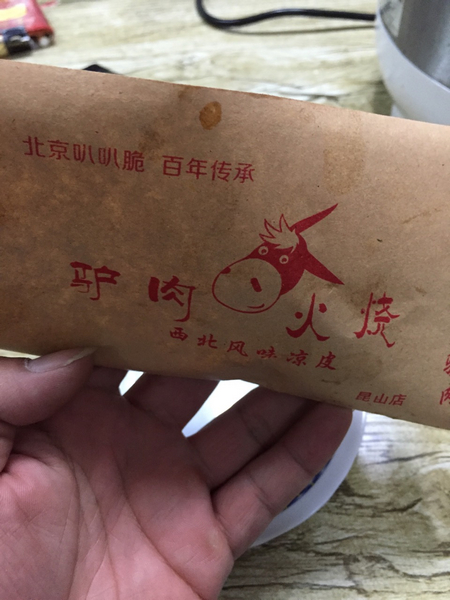 北京叭叭脆 百年传承
驴肉火烧
西北风味凉皮
昆山店